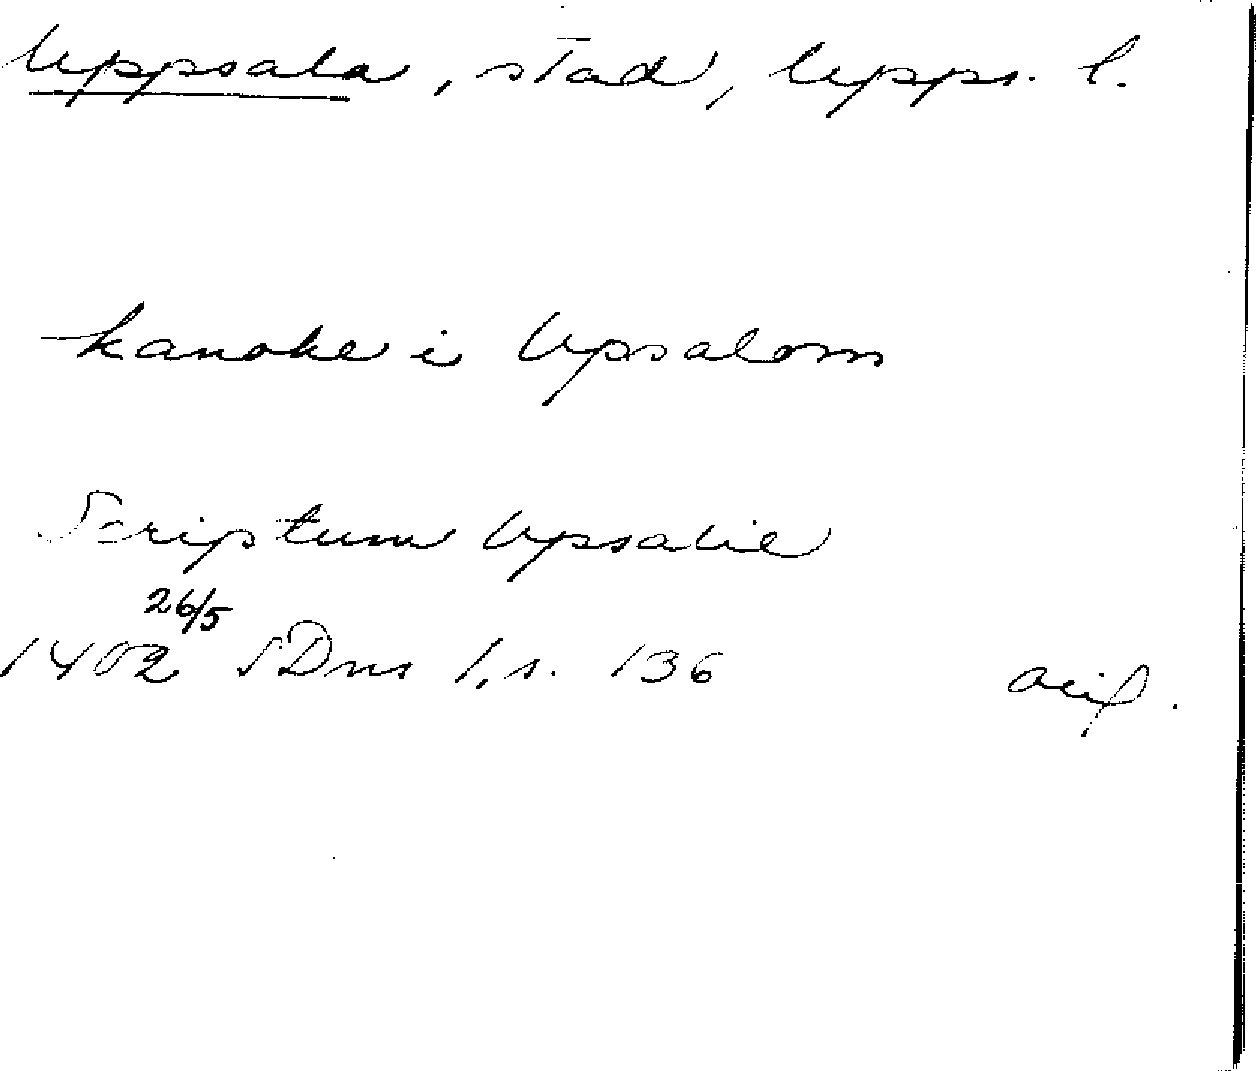 Uppsala, stad, Upps. l.
kanoke i Upsalom
Scriptum Upsalie
26/5
1402 SDns 1, s. 136
avif.